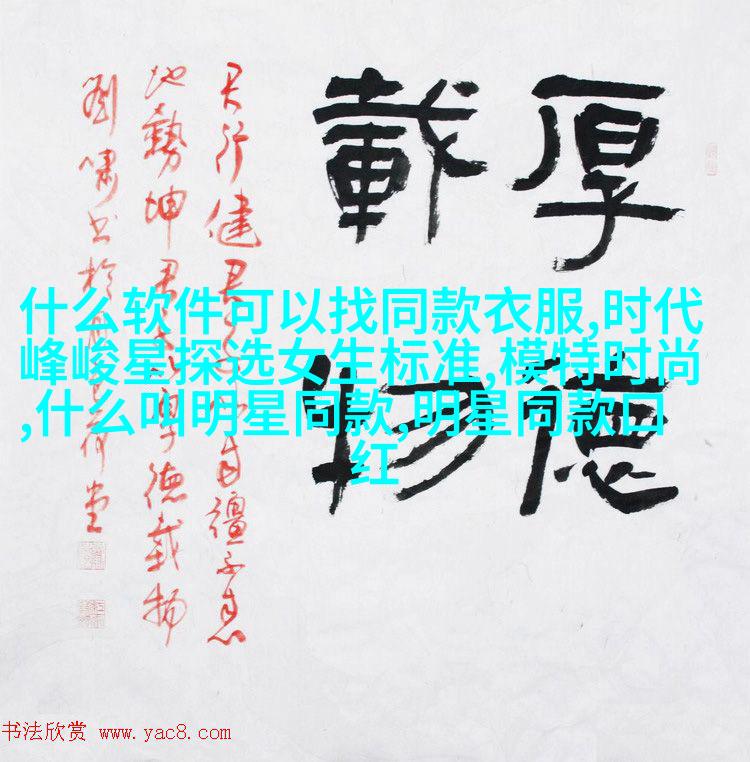 厚德
載物
天行健君子以自彊不息
地勢坤君子以厚德載物
劉嘯书於
什么软件可以找同款衣服,时代
峰峻星探选女生标准,模特时尚
,什么叫明星同款,明星同款口
红
书法欣赏 www.yac8.com